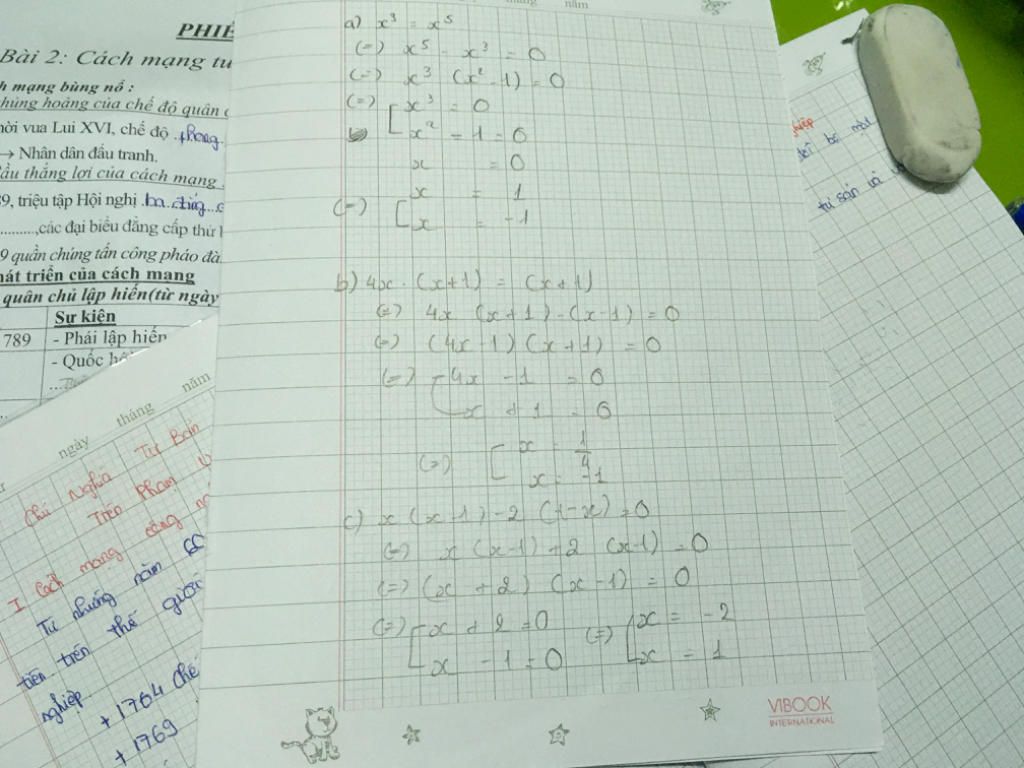 PHIẾ
Bài 2: Cách mạng tư
h mạng bùng nổ :
hủng hoảng của chế độ quân c
hời vua Lui XVI, chế độ .phong
→ Nhân dân đấu tranh.
ầu thắng lợi của cách mạng
9, triệu tập Hội nghị .ba đẳng
..........,các đại biểu đẳng cấp thứ
9 quần chúng tấn công pháo đà
hát triển của cách mang
quân chủ lập hiến(từ ngày
Sự kiện
789 - Phái lập hiến
- Quốc hội
ngày tháng năm
Chủ Nghĩa Tư Bản
Trên Phạm
I Cách mạng công
Từ những năm 60
tiên trên thế giới
nghiệp
+ 1764 Chế
+ 1769
tháng năm
a) x³ = x⁵
(=) x⁵ - x³ = 0
(=) x³ (x² - 1) = 0
(=) [ x³ = 0
x² - 1 = 0
x = 0
x = 1
(=) [ x = -1
b) 4x . (x+1) = (x+1)
(=) 4x (x+1) - (x-1) = 0
(=) (4x-1) (x+1) = 0
(=) [ 4x - 1 = 0
x + 1 = 0
(=) [ x = 1/4
x = -1
c) x (x-1) - 2 (1-x) = 0
(=) x (x-1) + 2 (x-1) = 0
(=) (x + 2) (x - 1) = 0
(=) [ x + 2 = 0 (=) [ x = -2
x - 1 = 0 x = 1
VIBOOK
INTERNATIONAL
hiệp
tư sản và